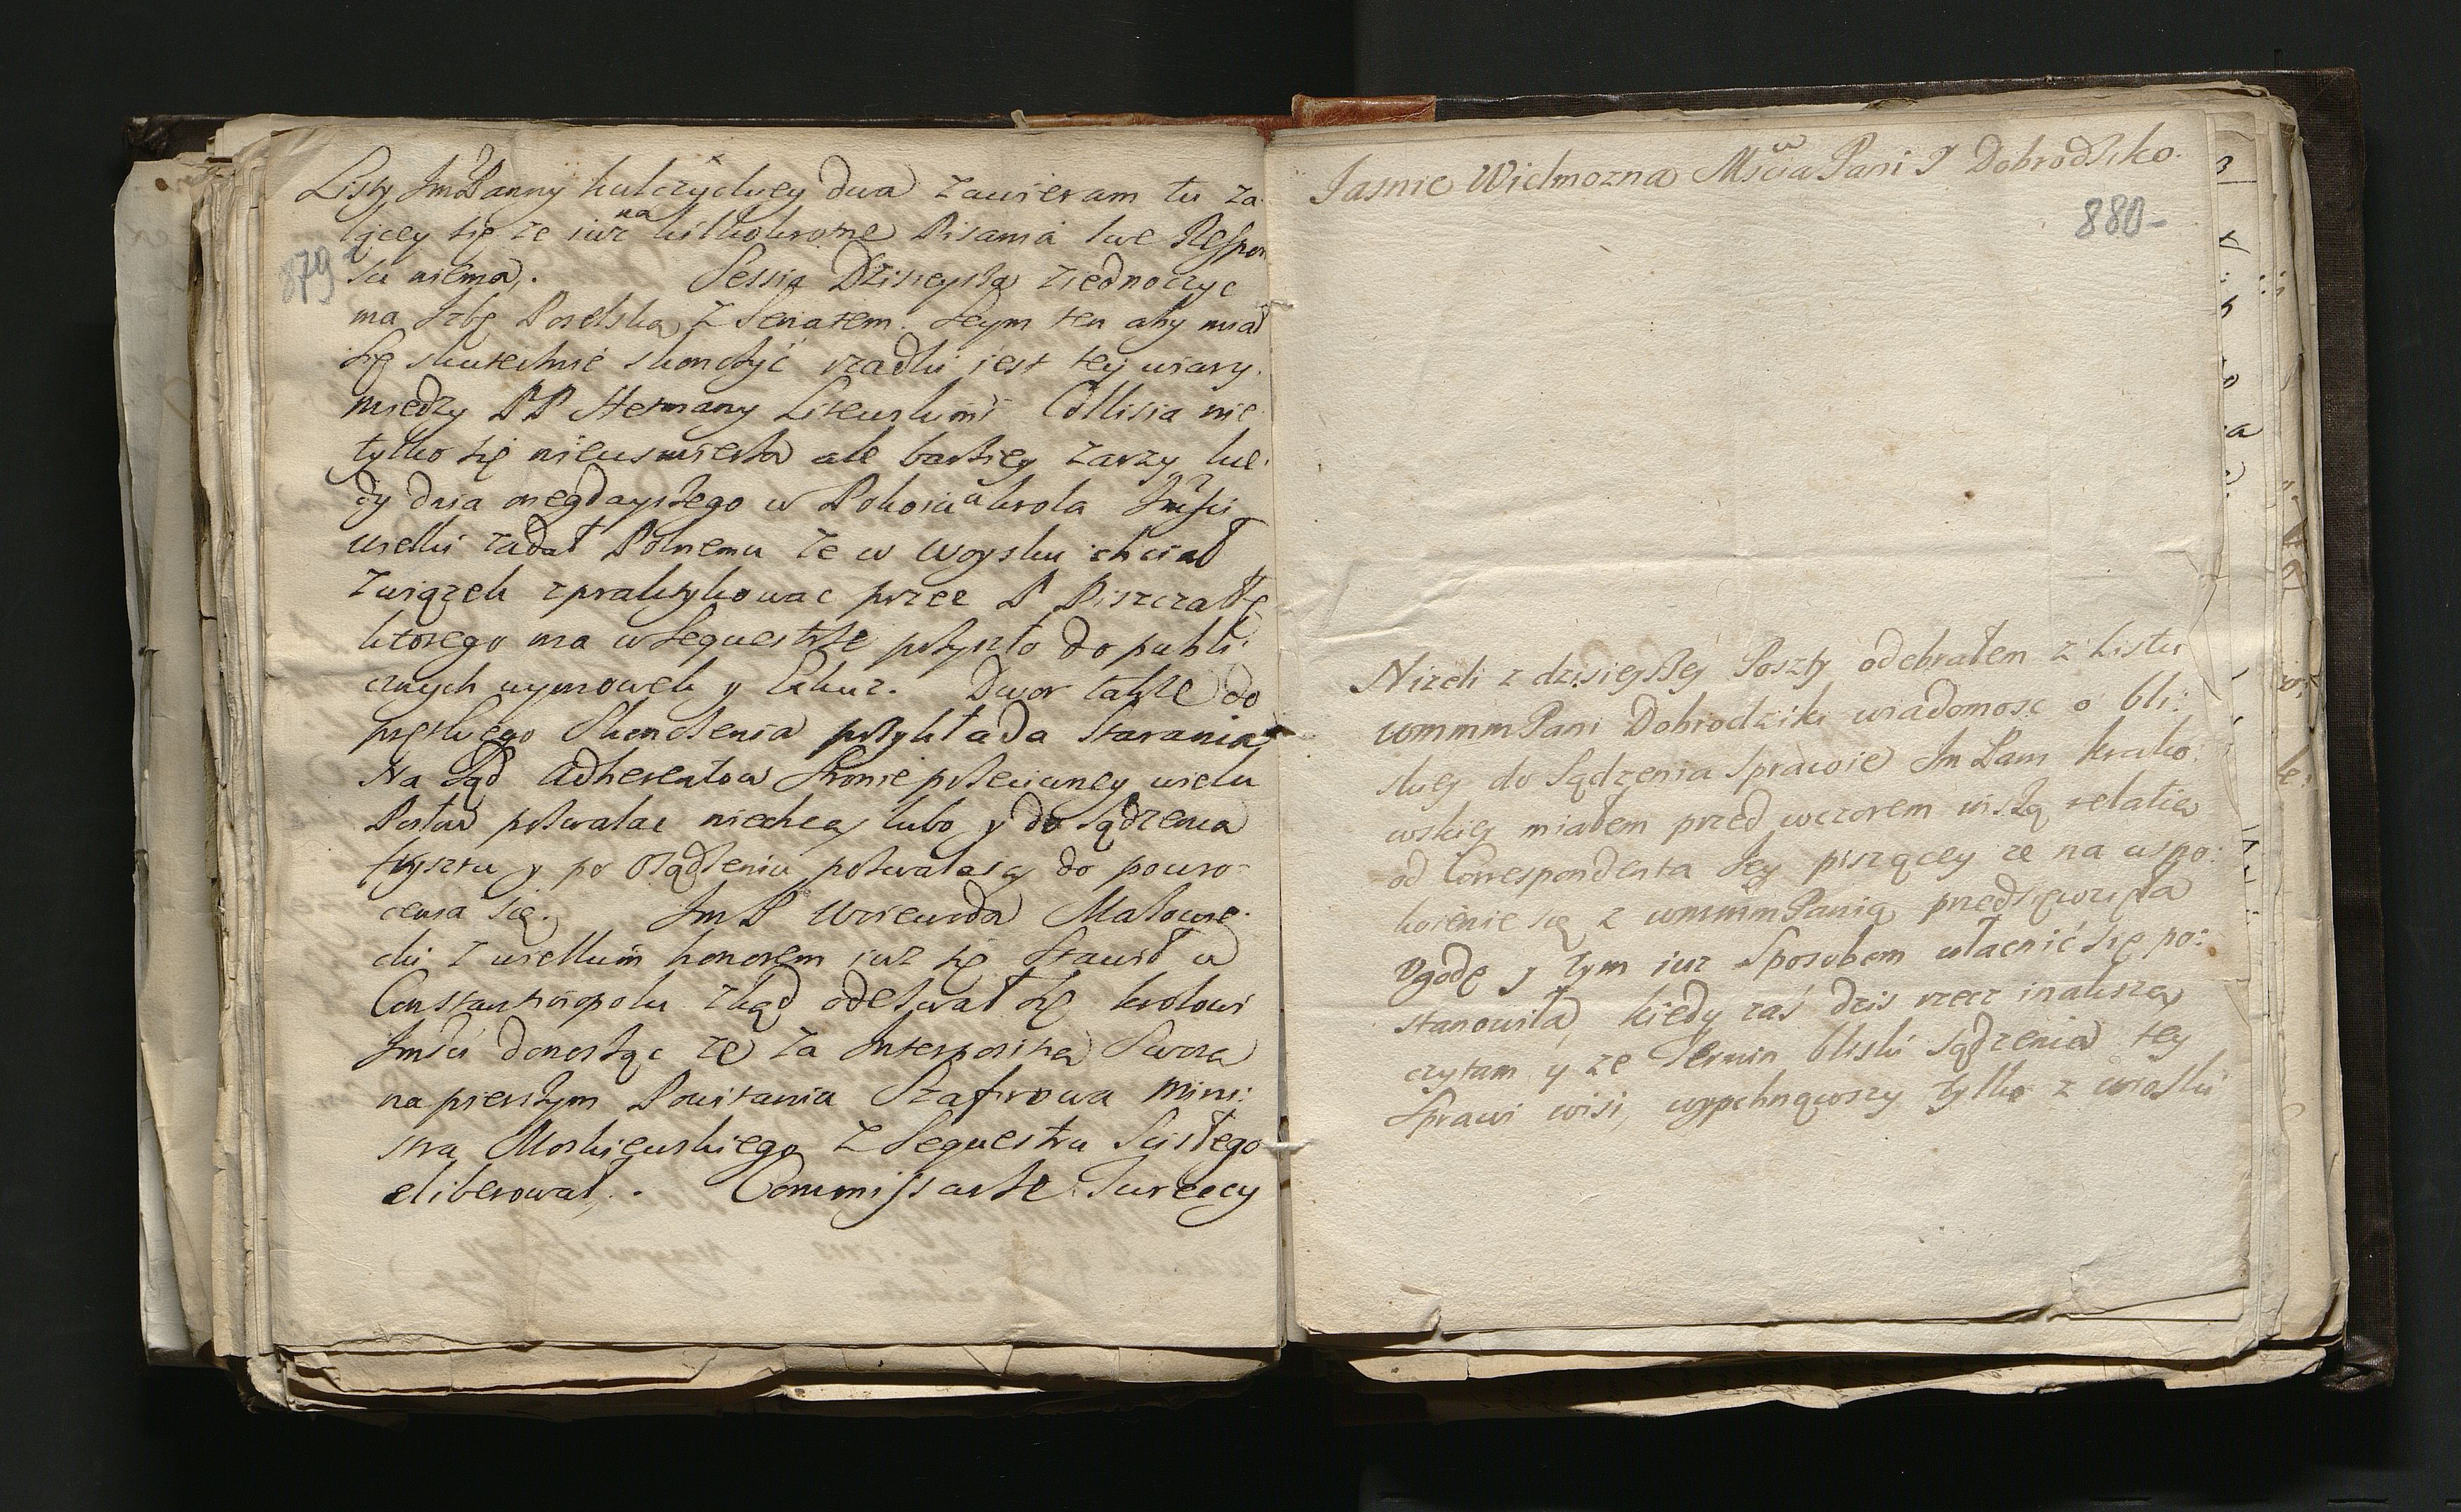 Listy JmPanny kulczyckiey dwa zawieram tu za
lącey się ze iuz na kilkokrotne Pisania swe Respon
su niema. Sessia Dzisieysza ziednoczyc
ma Izbę Poselską z Senatem. Seym ten aby miał
się skutecznie skonczyć rzadki iest tey wiary.
między PP Hetmany Litewskimi Collisia nie
tylko się nieusmierza ale barziey zarzy kie
dy dnia onegdayszego w Pokoiu u krola Jmsci
wielki zadał Polnemu ze w woysku chciał
związek zpraktykowac przez P Piszczałę
ktorego ma w sequestrze przyszło do publi
cznych wymowek y Exkuz. Dwor także do
prętkiego skonczenia przykłada starania
Na Sąd Adherentow stronie przeciwney wielu
Posłow pozwalac niechcą lubo y do sądzenia
trysztu y po osądzeniu pozwalaią do powro
cenia się. Jm P Woiewoda Mazowie
cki z wielkim honorem iuz się stawił w
Constantinopolu zkąd odezwał się krolowi
Jmsci donosząc ze za Interpositią swoią
na pierszym Powitaniu Szafirowa Mini
stra Moskiewskiego z Sequestru scisłego
eliberował. Commissarze Tureccy
879
Jasnie Wielmozna Mscia Pani J Dobrodziko.
880-
Nizeli z dzisieyszey Poszty odebrałem z Listu
wmmmPani Dobrodziki wiadomosc o bli:
skiey do sądzenia sprawie Jm Pani krako
wskiey miałem przed wczorem niszą relatią
od Correspondenta Jey piszącey ze na uspo:
koienie się z wmmmPanią przedsięwzięła
Vgodę y tym iuz sposobem ułacnić się po:
stanowiła, kiedy zaś dzis rzecz inakszą
czytam y ze Termin bliski sądzenia tey
Sprawi wisi, wypchnąwszy tylko z wioski